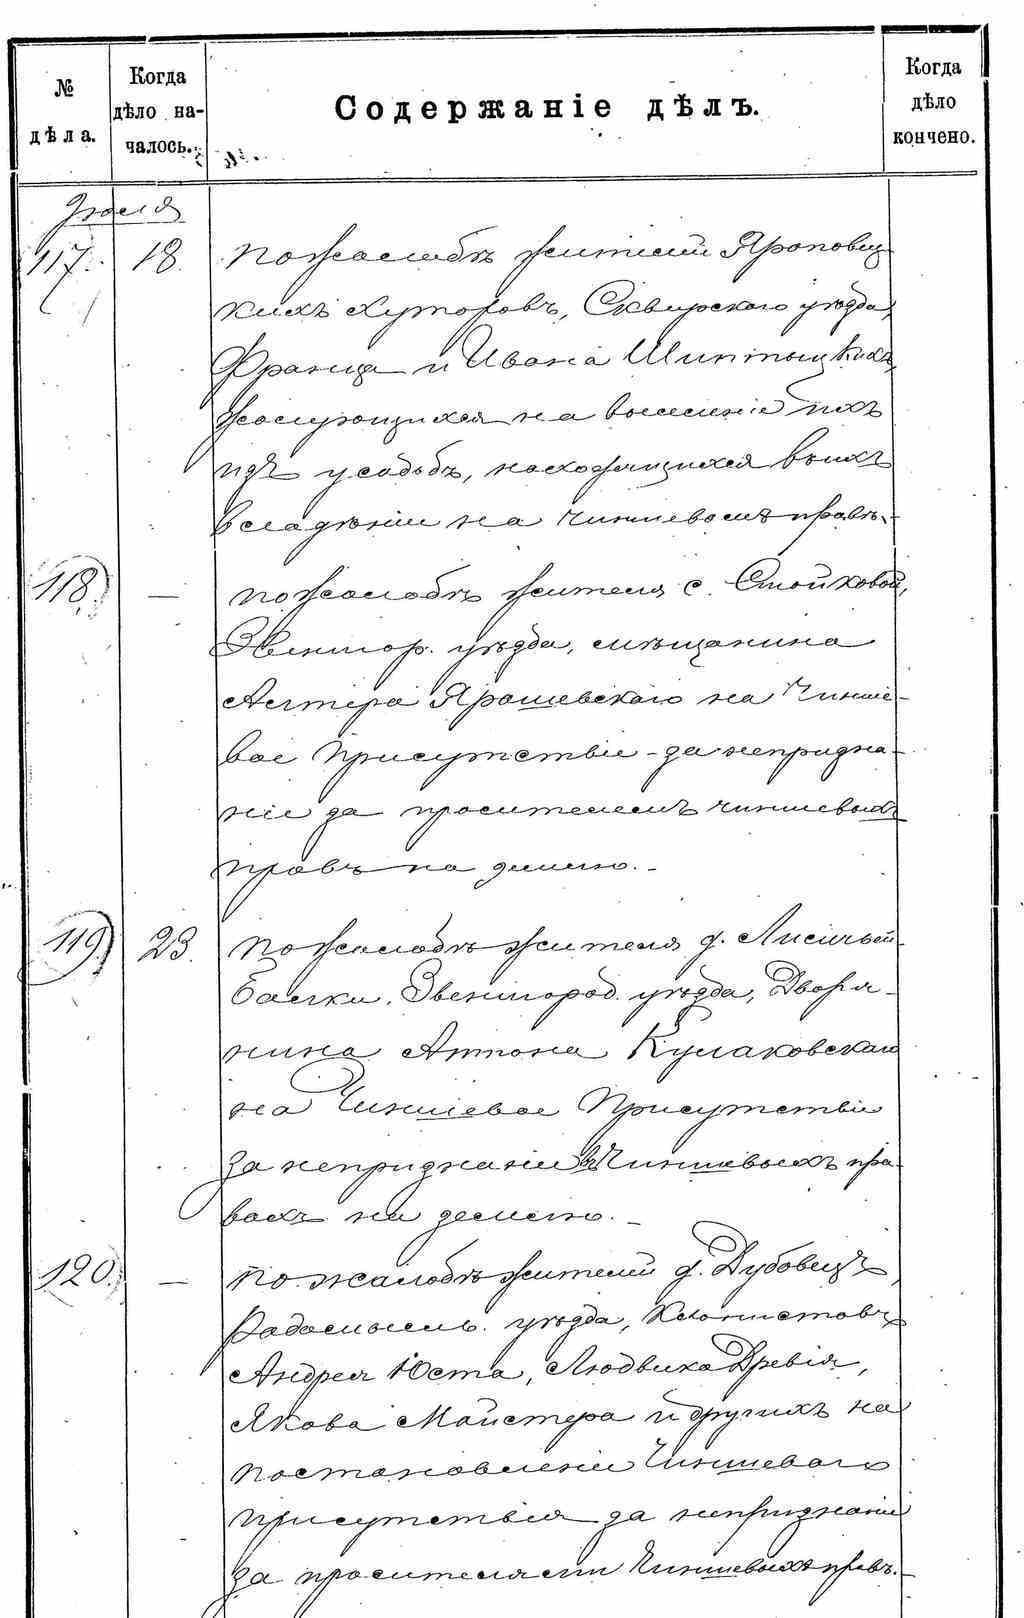 № дѣла.
Когда дѣло началось.
Содержаніе дѣлъ.
Когда дѣло кончено.
Іюля
117. 18. По жалобѣ жителей Яроповец-
кихъ хуторовъ, Сквирскаго уѣзда,
Франца и Ивана Шиптыцкихъ,
жалующихся на выселеніе ихъ
изъ усадьбъ, находящихся въ ихъ
владѣніи на чиншевомъ правѣ.-
118. — По жалобѣ жителя с. Стойковой,
Звенигор. уѣзда, мѣщанина
Антера Ярошевскаго на Чинше-
вое Присутствіе за непризна-
ніе за просителемъ чиншевыхъ
правъ на землю.-
119. 23. По жалобѣ жителя д. Лисичьей
Балки, Звенигород. уѣзда, Дворя-
нина Антона Кулаковскаго
на Чиншевое Присутствіе
за непризнаніе въ Чиншевыхъ пра-
вахъ на землю.-
120. — По жалобѣ жителей д. Дубовецъ,
Радомысль. уѣзда, Колонистовъ
Андрея Юста, Людвика Древія,
Якова Майстера и другихъ на
постановленіе Чиншеваго
присутствія за непризнаніе
за просителями Чиншевыхъ правъ.-